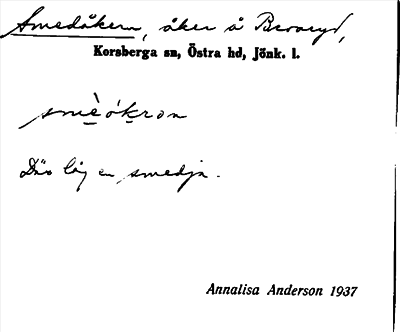 Smedåkern, åker å Bervaryd,
Korsberga sn, Östra hd, Jönk. l.
smè̱óḵron
Där låg en smedja.
Annalisa Anderson 1937